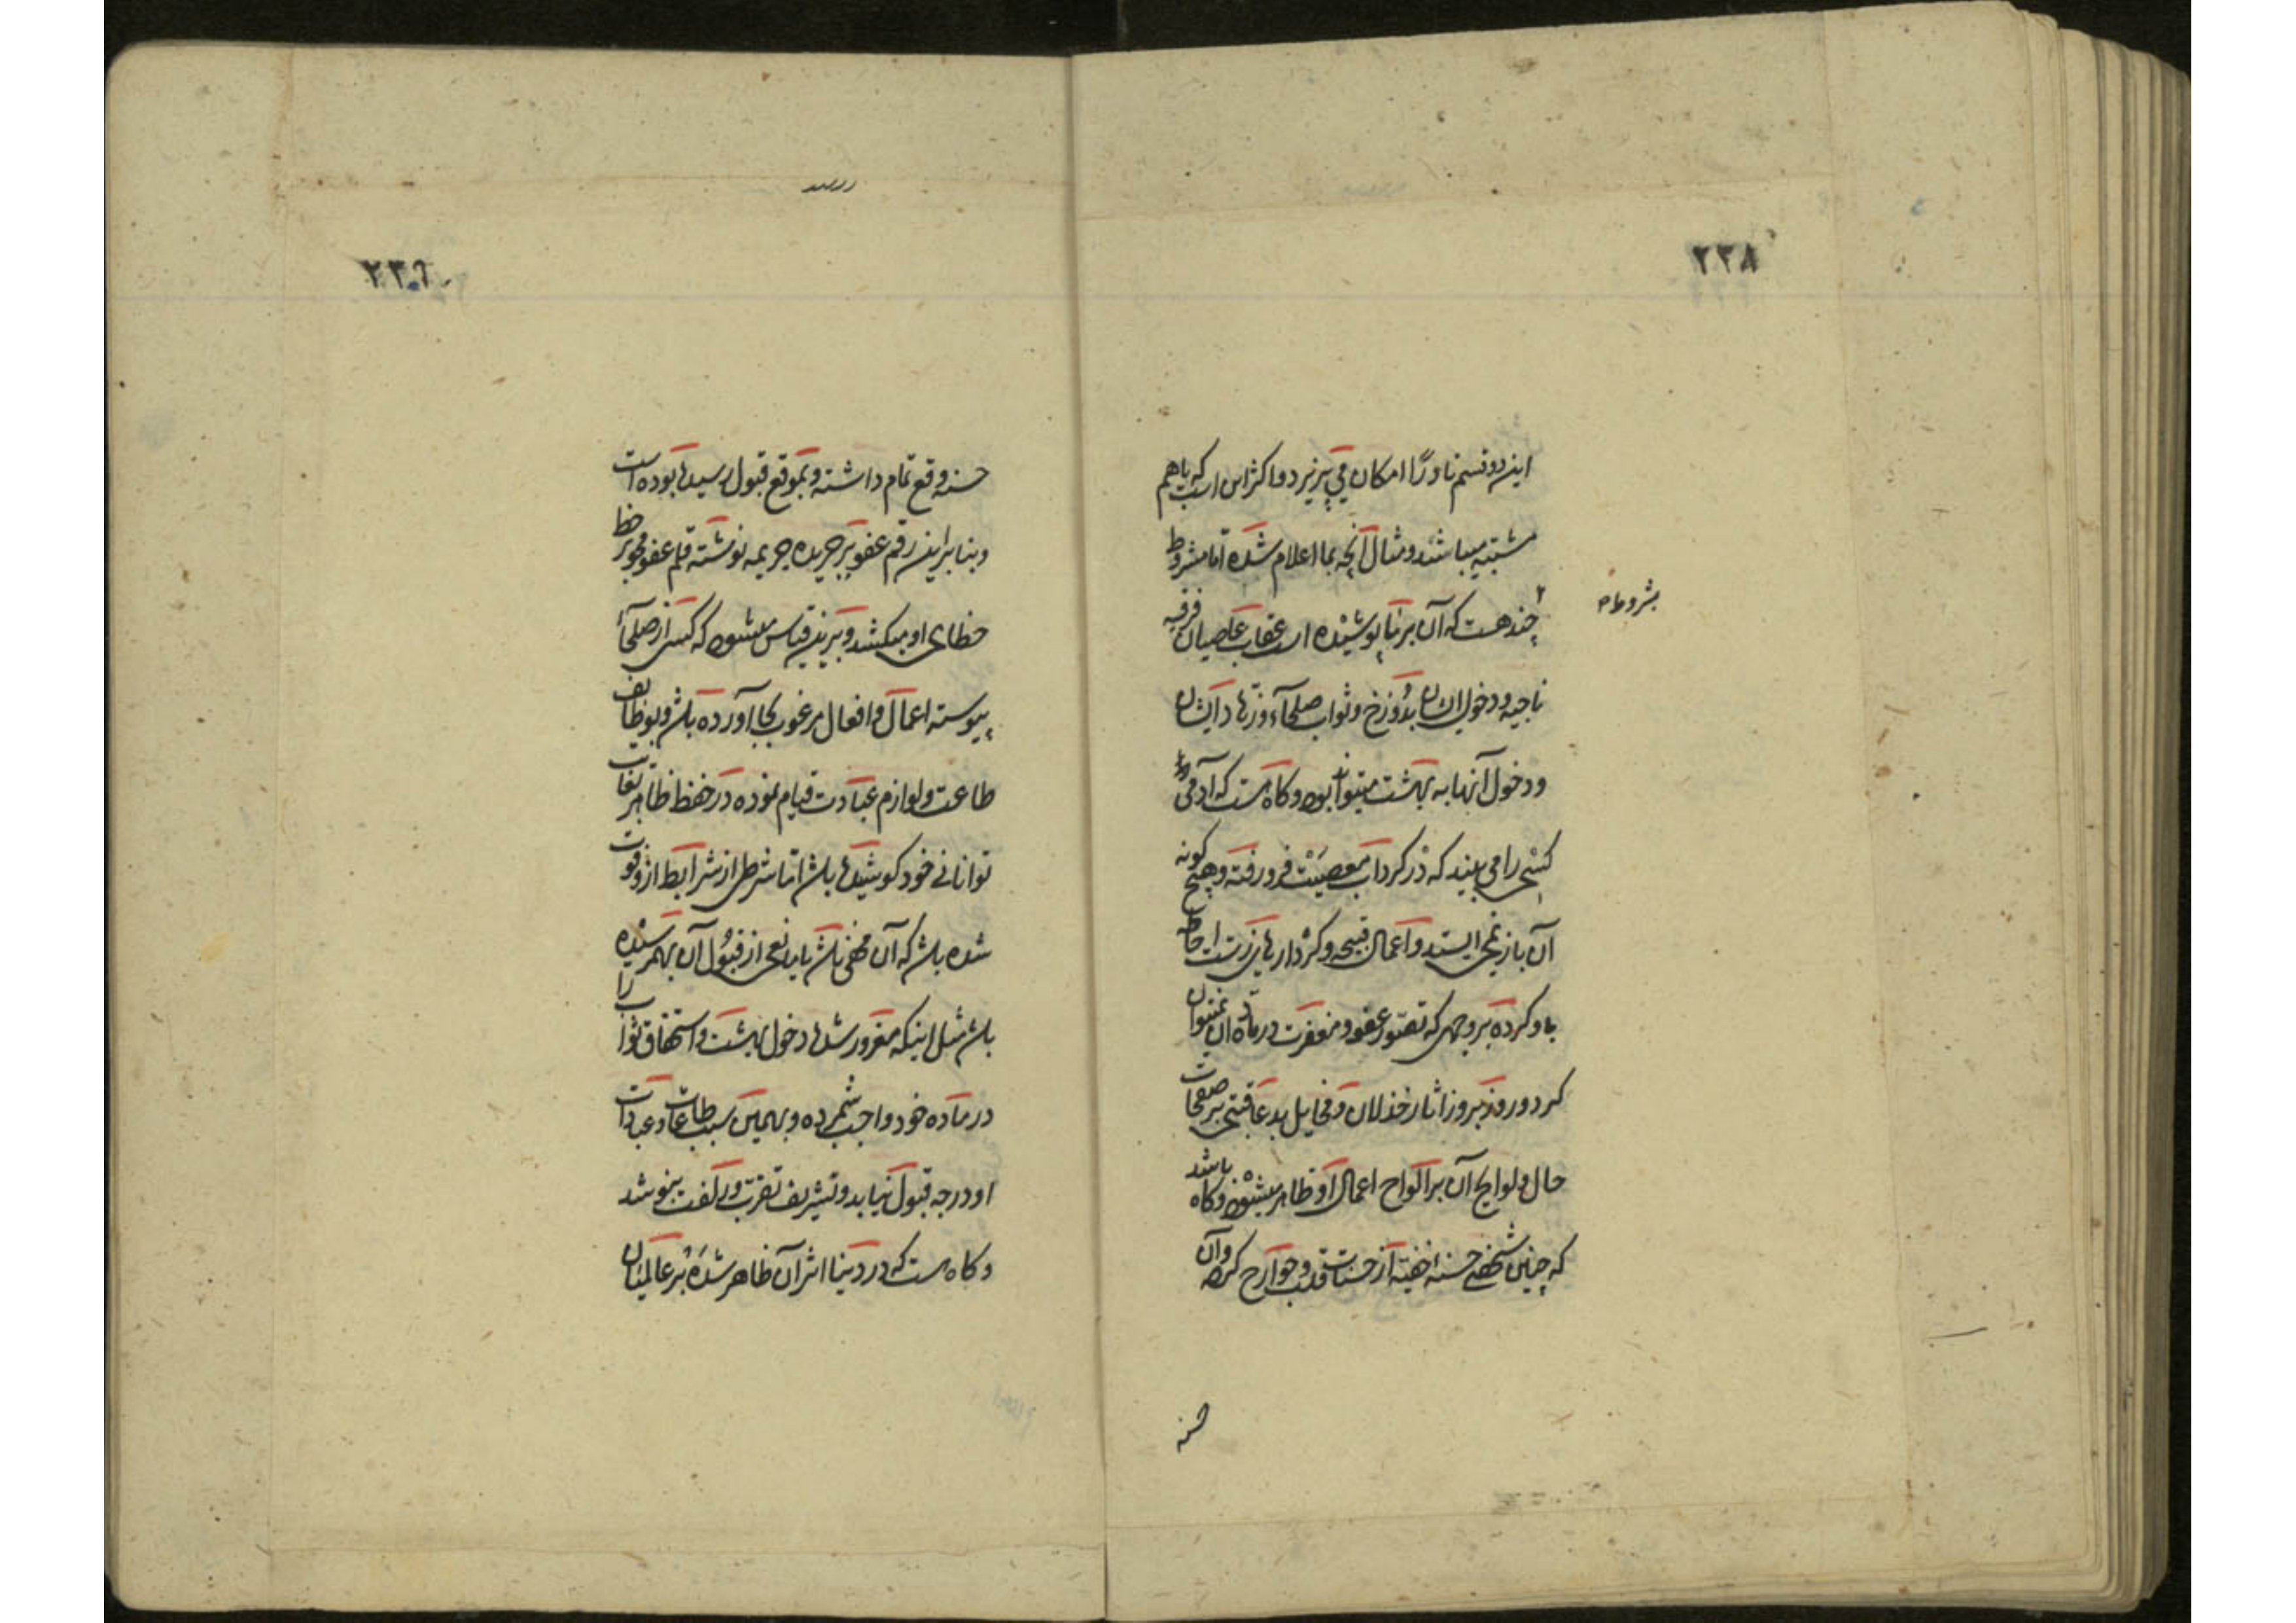 ۲۳۸
این دو قسم نادرًا امکان می پذیرد و اکثر این است که باهم
مشتبه میباشند و مثال آنچه بما اعلام شده اما مشروط
چند هست که آن بر ما پوشیده است عقاب عاصیان فرقه
بشروط
ناجیه و دخول ایشان بدوزخ و ثواب صلحآء و زهاد ایشان
و دخول آنها به بهشت میتواند بود و کاه هست که آدمی
کسی را می بیند که در کرداب معصیت فرو رفته و هیچ کونه
آن باز نمی ایستد و اعمال قبیحه و کردارهای زشت احاطه
باو کرده بر وجهی که تصور عفو و مغفرت در ماده آن نمیتوان
کرد و روز بروز اثار خذلان و مخایل بد عاقبتی بر صفحات
حال و لوایح آن بر الواح اعمال او ظاهر میشود و کاه باشد
که چنین شخصی حسنه خفیه از حسنات قلب و جوارح کرده و آن
حسنه
۲۳۹
حسنه وقع تمام داشته و بموقع قبول رسیده بوده است
و بنا براین رقم عفو بر جریده جریمه نوشته قلم عفو بر
خطای او میکشد و برین قیاس میشود که کسی از صلحآء
پیوسته اعمال و افعال مرغوب بجا آورده باشد و بوظایف
طاعت و لوازم عبادت قیام نموده در حفظ ظاهر بغایت
توانائی خود کوشیده باشد اما شرطی از شرایط ازو فوت
شده باشد که آن مخفی باشد یا مانعی از قبول آن بهم رسیده
باشد مثل اینکه مغرور شده دخول بهشت و استحقاق ثواب را
در ماده خود واجب شمرده و بهمین سبب طاعات و عبادات
او درجه قبول نیابد و تشریف تقرب و زلفت نپوشد
و کاه هست که در دنیا اثر آن ظاهر شده بر عالمیان